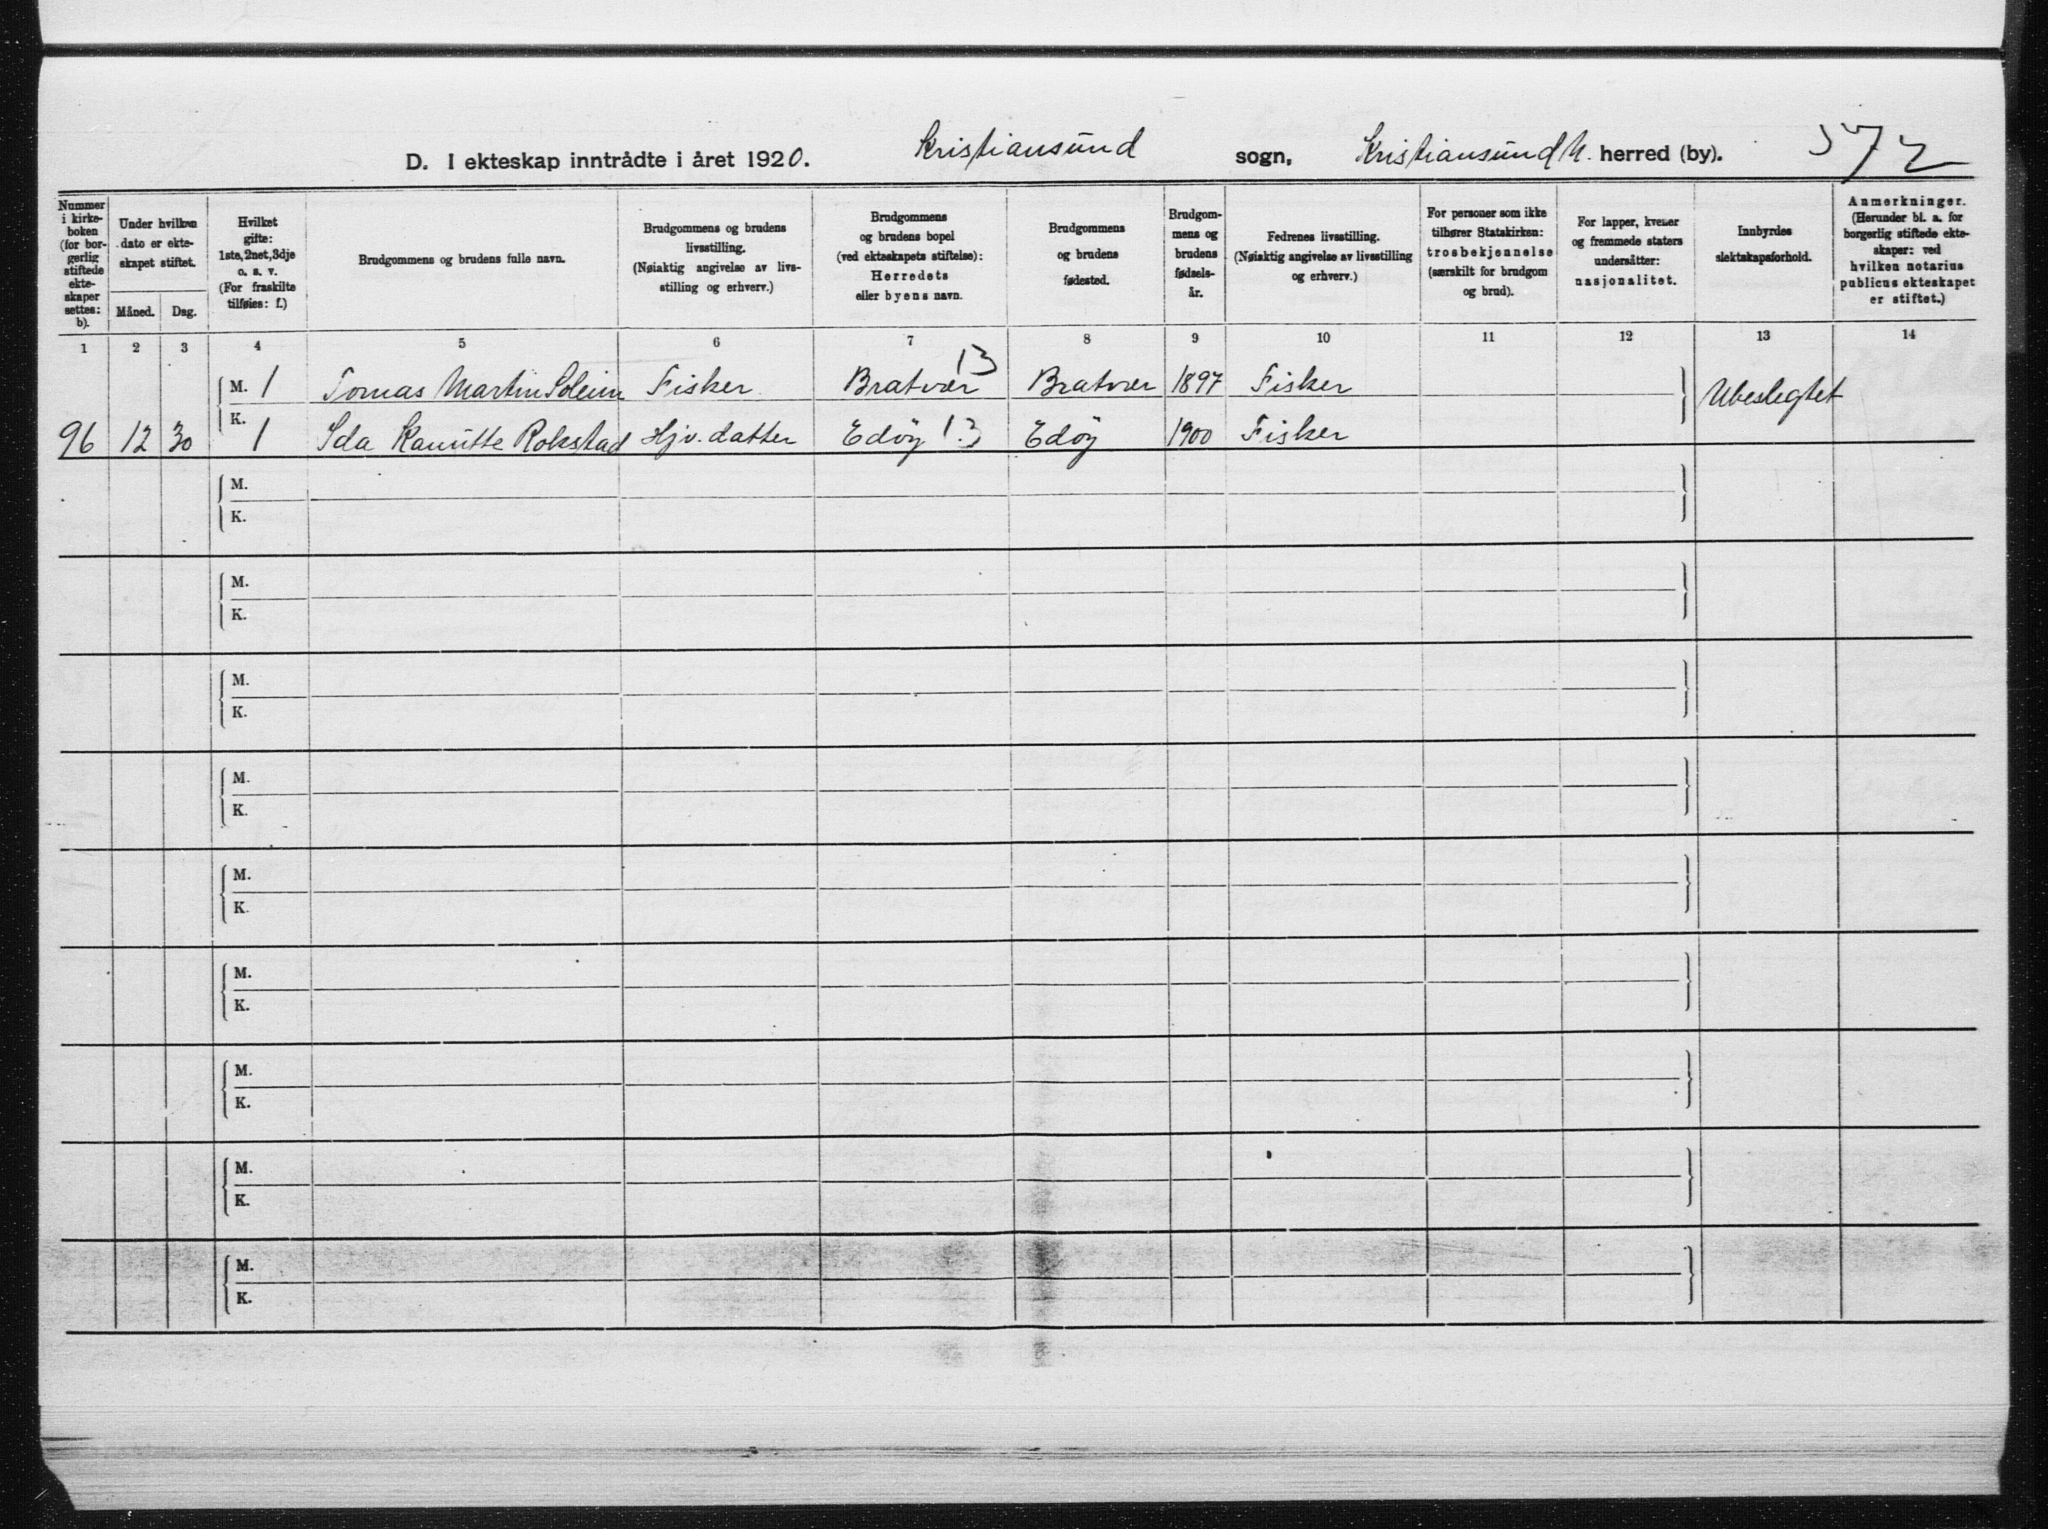 Kristiansund Kristiansund N. 572
D. I ekteskap inntrådte i året 1920. sogn, herred (by).
Nummer i kirke-boken (for bor-gerlig stiftede ekte-skaper settes: b).
Under hvilken dato er ekte-skapet stiftet.
Måned. Dag.
Hvilket gifte: 1ste, 2net, 3dje o. s. v. (For fraskilte tilføies: f.)
Brudgommens og brudens fulle navn.
Brudgommens og brudens livsstilling. (Nøiaktig angivelse av livs-stilling og erhverv.)
Brudgommens og brudens bopel (ved ekteskapets stiftelse): Herredets eller byens navn.
Brudgommens og brudens fødested.
Brudgom-mens og brudens fødsels-år.
Fedrenes livsstilling. (Nøiaktig angivelse av livsstilling og erhverv.)
For personer som ikke tilhører Statskirken: trosbekjennelse (særskilt for brudgom og brud).
For lapper, kvener og fremmede staters undersåtter: nasjonalitet.
Innbyrdes slektskapsforhold.
Anmerkninger. (Herunder bl. a. for borgerlig stiftede ekte-skaper: ved hvilken notarius publicus ekteskapet er stiftet.)
1 2 3 4 5 6 7 8 9 10 11 12 13 14
13
M. 1 Tomas Martin Soleim Fisker Bratvær Bratvær 1897 Fisker Ubeslegtet
K.
96 12 30 1 Ida Kanutte Rokstad Hjv. datter Edöy 13 Edöy 1900 Fisker
M.
K.
M.
K.
M.
K.
M.
K.
M.
K.
M.
K.
M.
K.
M.
K.
M.
K.